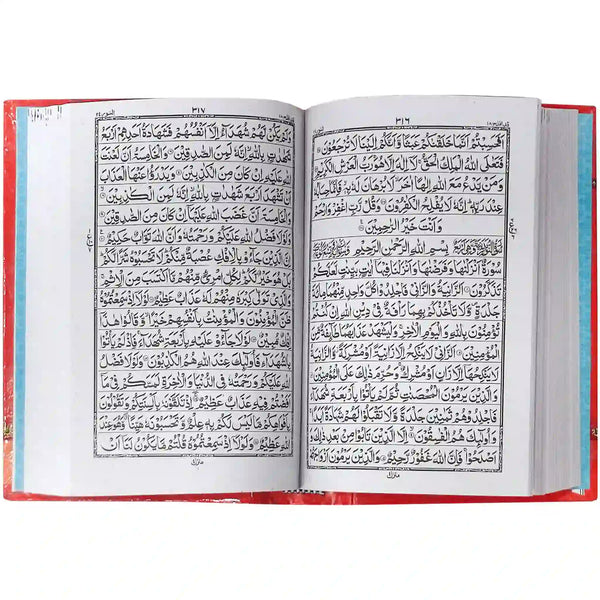 ٣١٦
اَفَحَسِبْتُمْ اَنَّمَا خَلَقْنٰكُمْ عَبَثًا وَّاَنَّكُمْ اِلَيْنَا لَا تُرْجَعُوْنَ
فَتَعٰلَى اللّٰهُ الْمَلِكُ الْحَقُّ لَاۤ اِلٰهَ اِلَّا هُوَ رَبُّ الْعَرْشِ الْكَرِيْمِ
وَمَنْ يَّدْعُ مَعَ اللّٰهِ اِلٰهًا اٰخَرَ لَا بُرْهَانَ لَهٗ بِهٖ فَاِنَّمَا حِسَابُهٗ
عِنْدَ رَبِّهٖ اِنَّهٗ لَا يُفْلِحُ الْكٰفِرُوْنَ وَقُلْ رَّبِّ اغْفِرْ وَارْحَمْ
وَاَنْتَ خَيْرُ الرّٰحِمِيْنَ
بِسْمِ اللّٰهِ الرَّحْمٰنِ الرَّحِيْمِ
سُوْرَةٌ اَنْزَلْنٰهَا وَفَرَضْنٰهَا وَاَنْزَلْنَا فِيْهَاۤ اٰيٰتٍۭ بَيِّنٰتٍ لَّعَلَّكُمْ
تَذَكَّرُوْنَ اَلزَّانِيَةُ وَالزَّانِيْ فَاجْلِدُوْا كُلَّ وَاحِدٍ مِّنْهُمَا مِائَةَ
جَلْدَةٍ وَّلَا تَاْخُذْكُمْ بِهِمَا رَاْفَةٌ فِيْ دِيْنِ اللّٰهِ اِنْ كُنْتُمْ
تُؤْمِنُوْنَ بِاللّٰهِ وَالْيَوْمِ الْاٰخِرِ وَلْيَشْهَدْ عَذَابَهُمَا طَآئِفَةٌ مِّنَ
الْمُؤْمِنِيْنَ اَلزَّانِيْ لَا يَنْكِحُ اِلَّا زَانِيَةً اَوْ مُشْرِكَةً وَّالزَّانِيَةُ
لَا يَنْكِحُهَاۤ اِلَّا زَانٍ اَوْ مُشْرِكٌ وَحُرِّمَ ذٰلِكَ عَلَى الْمُؤْمِنِيْنَ
وَالَّذِيْنَ يَرْمُوْنَ الْمُحْصَنٰتِ ثُمَّ لَمْ يَاْتُوْا بِاَرْبَعَةِ شُهَدَآءَ
فَاجْلِدُوْهُمْ ثَمٰنِيْنَ جَلْدَةً وَّلَا تَقْبَلُوْا لَهُمْ شَهَادَةً اَبَدًا
وَاُولٰٓئِكَ هُمُ الْفٰسِقُوْنَ اِلَّا الَّذِيْنَ تَابُوْا مِنْ بَعْدِ ذٰلِكَ وَ
اَصْلَحُوْا فَاِنَّ اللّٰهَ غَفُوْرٌ رَّحِيْمٌ وَالَّذِيْنَ يَرْمُوْنَ اَزْوَاجَهُمْ
منزل
٣١٧
وَلَمْ يَكُنْ لَّهُمْ شُهَدَآءُ اِلَّاۤ اَنْفُسُهُمْ فَشَهَادَةُ اَحَدِهِمْ اَرْبَعُ
شَهٰدٰتٍۭ بِاللّٰهِ اِنَّهٗ لَمِنَ الصّٰدِقِيْنَ وَالْخَامِسَةُ اَنَّ لَعْنَتَ
اللّٰهِ عَلَيْهِ اِنْ كَانَ مِنَ الْكٰذِبِيْنَ وَيَدْرَؤُا عَنْهَا الْعَذَابَ
اَنْ تَشْهَدَ اَرْبَعَ شَهٰدٰتٍۭ بِاللّٰهِ اِنَّهٗ لَمِنَ الْكٰذِبِيْنَ
وَالْخَامِسَةَ اَنَّ غَضَبَ اللّٰهِ عَلَيْهَاۤ اِنْ كَانَ مِنَ الصّٰدِقِيْنَ
وَلَوْلَا فَضْلُ اللّٰهِ عَلَيْكُمْ وَرَحْمَتُهٗ وَاَنَّ اللّٰهَ تَوَّابٌ حَكِيْمٌ
اِنَّ الَّذِيْنَ جَآءُوْ بِالْاِفْكِ عُصْبَةٌ مِّنْكُمْ لَا تَحْسَبُوْهُ شَرًّا لَّكُمْ
بَلْ هُوَ خَيْرٌ لَّكُمْ لِكُلِّ امْرِئٍ مِّنْهُمْ مَّا اكْتَسَبَ مِنَ الْاِثْمِ
وَالَّذِيْ تَوَلّٰى كِبْرَهٗ مِنْهُمْ لَهٗ عَذَابٌ عَظِيْمٌ لَوْلَاۤ اِذْ سَمِعْتُمُوْهُ
ظَنَّ الْمُؤْمِنُوْنَ وَالْمُؤْمِنٰتُ بِاَنْفُسِهِمْ خَيْرًا وَّقَالُوْا هٰذَاۤ
اِفْكٌ مُّبِيْنٌ لَوْلَا جَآءُوْ عَلَيْهِ بِاَرْبَعَةِ شُهَدَآءَ فَاِذْ لَمْ يَاْتُوْا
بِالشُّهَدَآءِ فَاُولٰٓئِكَ عِنْدَ اللّٰهِ هُمُ الْكٰذِبُوْنَ وَلَوْلَا فَضْلُ
اللّٰهِ عَلَيْكُمْ وَرَحْمَتُهٗ فِي الدُّنْيَا وَالْاٰخِرَةِ لَمَسَّكُمْ فِيْ مَاۤ
اَفَضْتُمْ فِيْهِ عَذَابٌ عَظِيْمٌ اِذْ تَلَقَّوْنَهٗ بِاَلْسِنَتِكُمْ وَتَقُوْلُوْنَ
بِاَفْوَاهِكُمْ مَّا لَيْسَ لَكُمْ بِهٖ عِلْمٌ وَّتَحْسَبُوْنَهٗ هَيِّنًا وَّهُوَ عِنْدَ
اللّٰهِ عَظِيْمٌ وَلَوْلَاۤ اِذْ سَمِعْتُمُوْهُ قُلْتُمْ مَّا يَكُوْنُ لَنَاۤ اَنْ
منزل